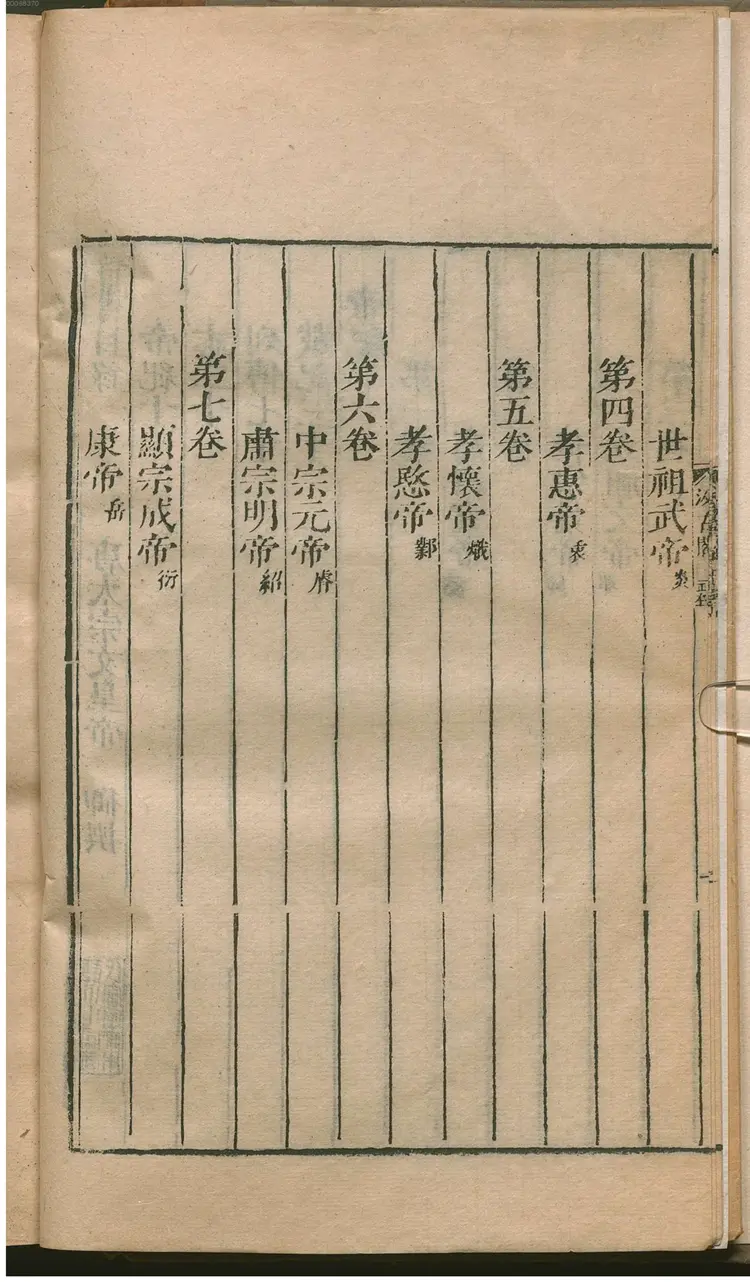 世祖武帝炎
第四卷
孝惠帝衷
第五卷
孝懷帝熾
孝愍帝鄴
第六卷
中宗元帝睿
肅宗明帝紹
第七卷
顯宗成帝衍
康帝岳